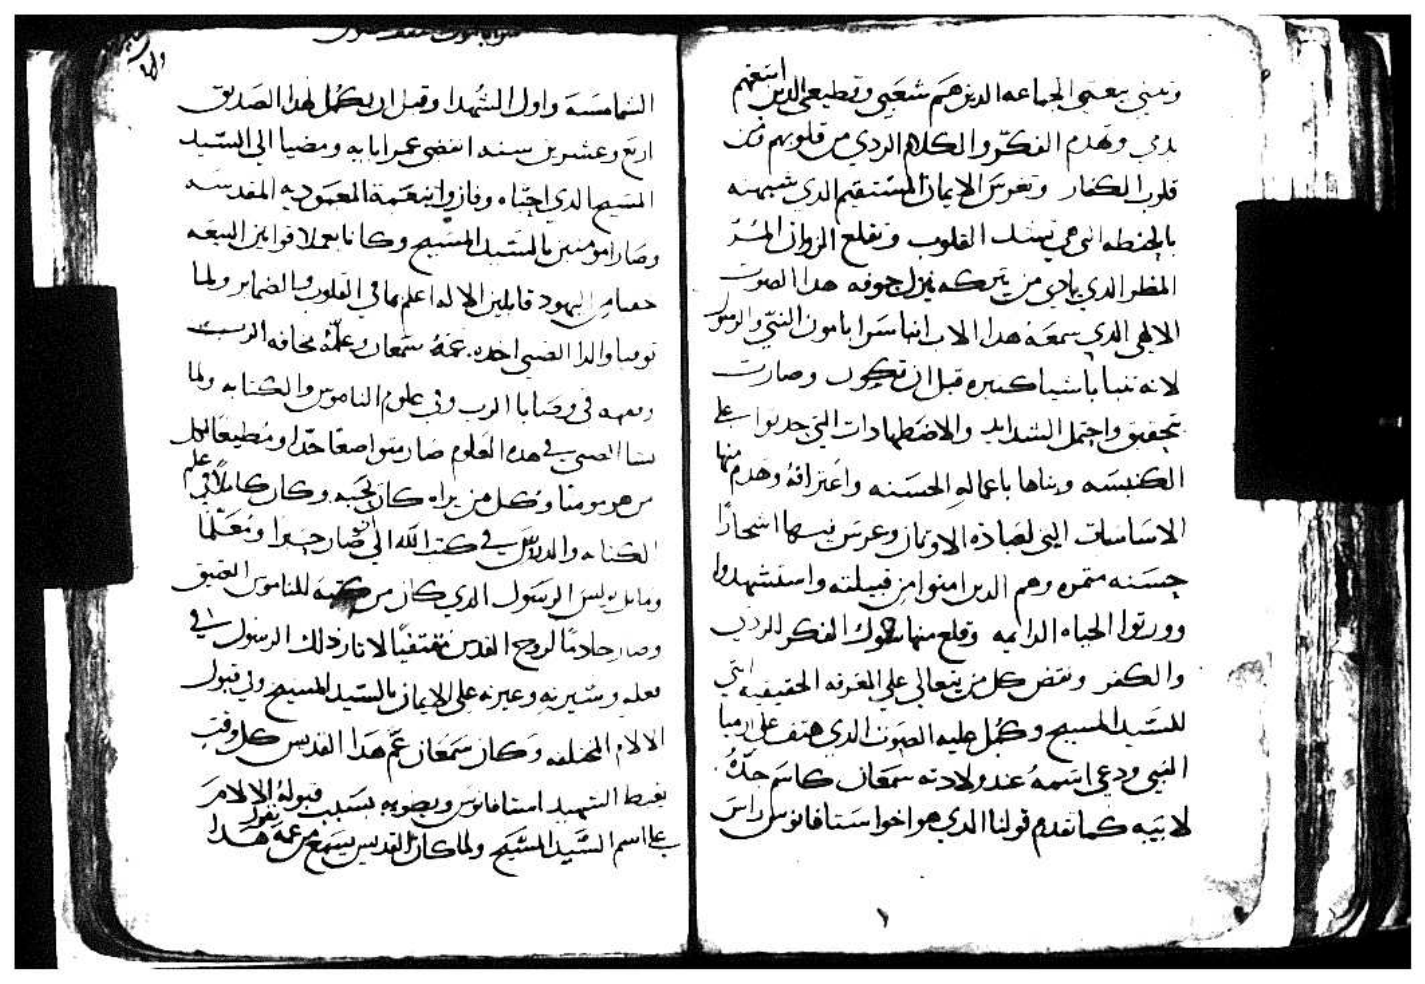 وتبني بيعتي الجماعه الدين هم شعبي وقطيعي الدين ابتعتهم
بدمي وتهدم الفكر والكلام الردي من قلوبهم ومن
قلوب الكفار وتغرس الايمان المستقيم الدي شبهته
بالحنطه التي هي تسند القلوب وتقلع الزوان المر
المظر الدي يادي من يتركه ينزل جوفه هدا الصوت
الالهي الدي سمعه هدا الاب انبا سرابامون النبي والرسول
لانه تنبا باشيا كتيره قبل ان تكون وصارت
بتحقيق واحتمل الشدايد والاضطهادات التي حدتوا على
الكنيسه وبناها باعماله الحسنه واعترافه وهدم منها
الاساسات التي لعبادة الاوتان وغرس فيها اشجارا
حسنه متمره وهم الدين امنوا من قبيلته واستشهدوا
وورتوا الحياه الدايمه وقلع منها شوك الفكر الردي
والكفر ونقض كل من يتعالى على المعرفه الحقيقيه التي
للسيد المسيح وكمل عليه الصوت الدي هتف على ارميا
النبي ودعي اسمه عند ولادته سمعان كاسم جده
لابيه كما تقدم قولنا الدي هو اخوا ستافانوس راس
الشمامسه واول الشهدا وقبل ان يكمل لهدا الصديق
اربع وعشرين سنه انقضى عمر ابايه ومضيا الى السيد
المسيح الدي احباه وفازوا بنعمة المعموديه المقدسه
وصارا مومنين بالسيد المسيح وكانا يعملا قوانين البيعه
خفيا من اليهود قايلين الاله اعلم بما في القلوب والضماير ولما
توفيا والدا الصبي اخده عمه سمعان وعلمه مخافه الرب
في وصايا الرب وفي علوم الناموس والكتابه ولما
الصبي في هده العلوم صار متواضعا جدا ومطيعا لكل
من هو مومنا وكل من يراه كان يحبه وكان كاملا في علم
الكتابه والدراس في كتب الله الى ان صار حبرا ومعلما
وماتل بولس الرسول الدي كان من كتبة للناموس العتيق
وصار خادما لروح القدس مقتفيا لاتار دلك الرسول في
فعله وسيرته وغيرته على الايمان بالسيد المسيح وفي قبول
الالام المختلفه وكان سمعان عم هدا القديس كل وقت
يغبط الشهيد استافانوس ويطوبه بسبب قبوله الالام
على اسم السيد المسيح ولما كان القديس يسمع من عمه يقول هدا